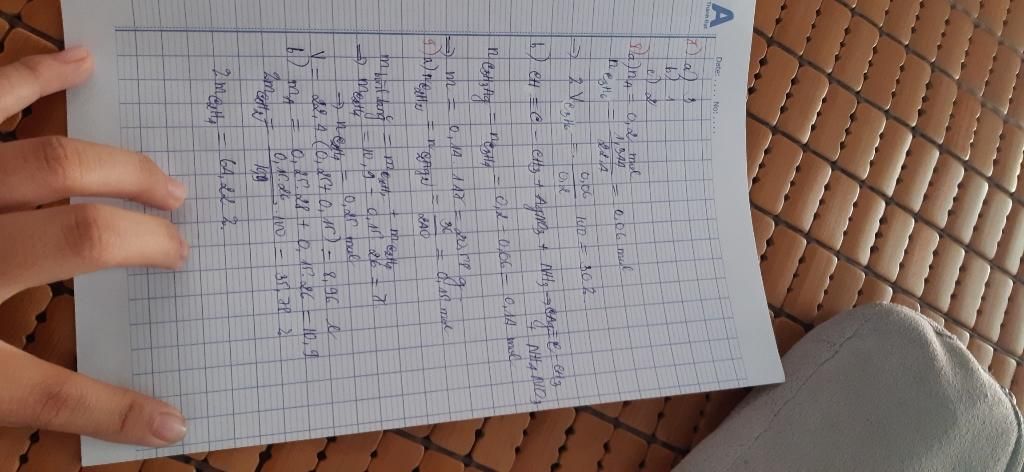 A
Date: ..... No: .....
7) a) 3
b) 1
c) 2
8) a) nA = 0,2 mol
nC3H6 = 1,344 / 22,4 = 0,06 mol
=> % VC3H6 = 0,06 / 0,2 . 100 = 30%
b) CH ≡ C - CH3 + AgNO3 + NH3 → CAg ≡ C - CH3 + NH4NO3
nC3H3Ag = nC3H4 = 0,2 - 0,06 = 0,14 mol
=> m = 0,14 . 147 = 20,58 g
9) a) nC2H2 = nC2Ag2 = 36 / 240 = 0,15 mol
m bình tăng = mC2H2 + mC2H4
=> mC2H4 = 10,9 - 0,15 . 26 = 7
=> nC2H4 = 0,25 mol
V = 22,4 (0,25 + 0,15) = 8,96 l
b) mA = 0,25 . 28 + 0,15 . 26 = 10,9
%mC2H2 = 0,15 . 26 . 100 = 35,78 %
%mC2H4 = 64,22 %